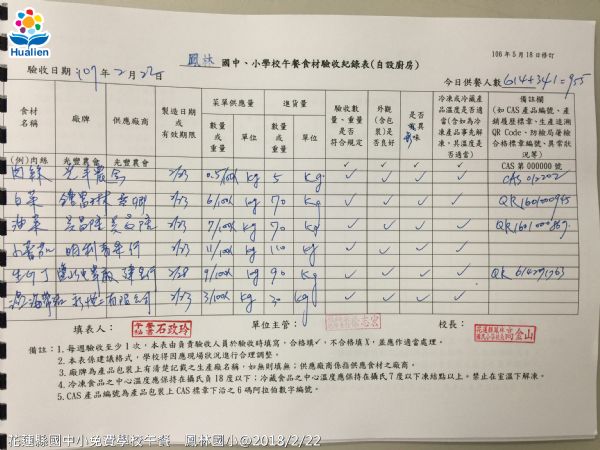 Hualien
106 年 5 月 18 日修訂
鳳林 國中、小學校午餐食材驗收紀錄表(自設廚房)
驗收日期:107年2月22日
今日供餐人數614+341=955
食材名稱 廠牌 供應廠商 製造日期或有效期限 菜單供應量 進貨量 驗收數量、重量是否符合規定 外觀(含包裝)是否良好 是否有異味 冷凍或冷藏產品溫度是否適當(含如為冷凍產品事先解凍,其溫度是否適當) 備註欄(如 CAS 產品編號、產銷履歷標章、生產追溯 QR Code、防檢局屠檢合格標章編號、異常狀況等)
數量或重量 單位 數量或重量 單位
(例)肉絲 光豐農會 光豐農會 ✓ ✓ ✓ ✓ CAS 第 000000 號
肉絲 光豐農會 2/23 kg 5 kg ✓ ✓ ✓ ✓
白菜 2/23 6/100人 kg 70 kg ✓ ✓ ✓
油菜 2/23 7/100人 kg 70 kg ✓ ✓ ✓
2/23 11/100人 kg 110 kg ✓ ✓ ✓
9/100人 kg 90 kg ✓ ✓ ✓
2/23 3/100人 kg 30 kg ✓ ✓ ✓
填表人: 石玫玲 單位主管: 校長:
備註:1.每週驗收至少 1 次,本表由負責驗收人員於驗收時填寫,合格填✓,不合格填 X,並應作適當處理。
2.本表係建議格式,學校得因應現場狀況進行合理調整。
3.廠牌為產品包裝上有清楚記載之生產廠名稱,如無則填無;供應廠商係指供應食材之廠商。
4.冷凍食品之中心溫度應保持在攝氏負 18 度以下;冷藏食品之中心溫度應保持在攝氏 7 度以下凍結點以上。禁止在室溫下解凍。
5.CAS 產品編號為產品包裝上 CAS 標章下沿之 6 碼阿拉伯數字編號。
花蓮縣國中小免費學校午餐 鳳林國小@2018/2/22